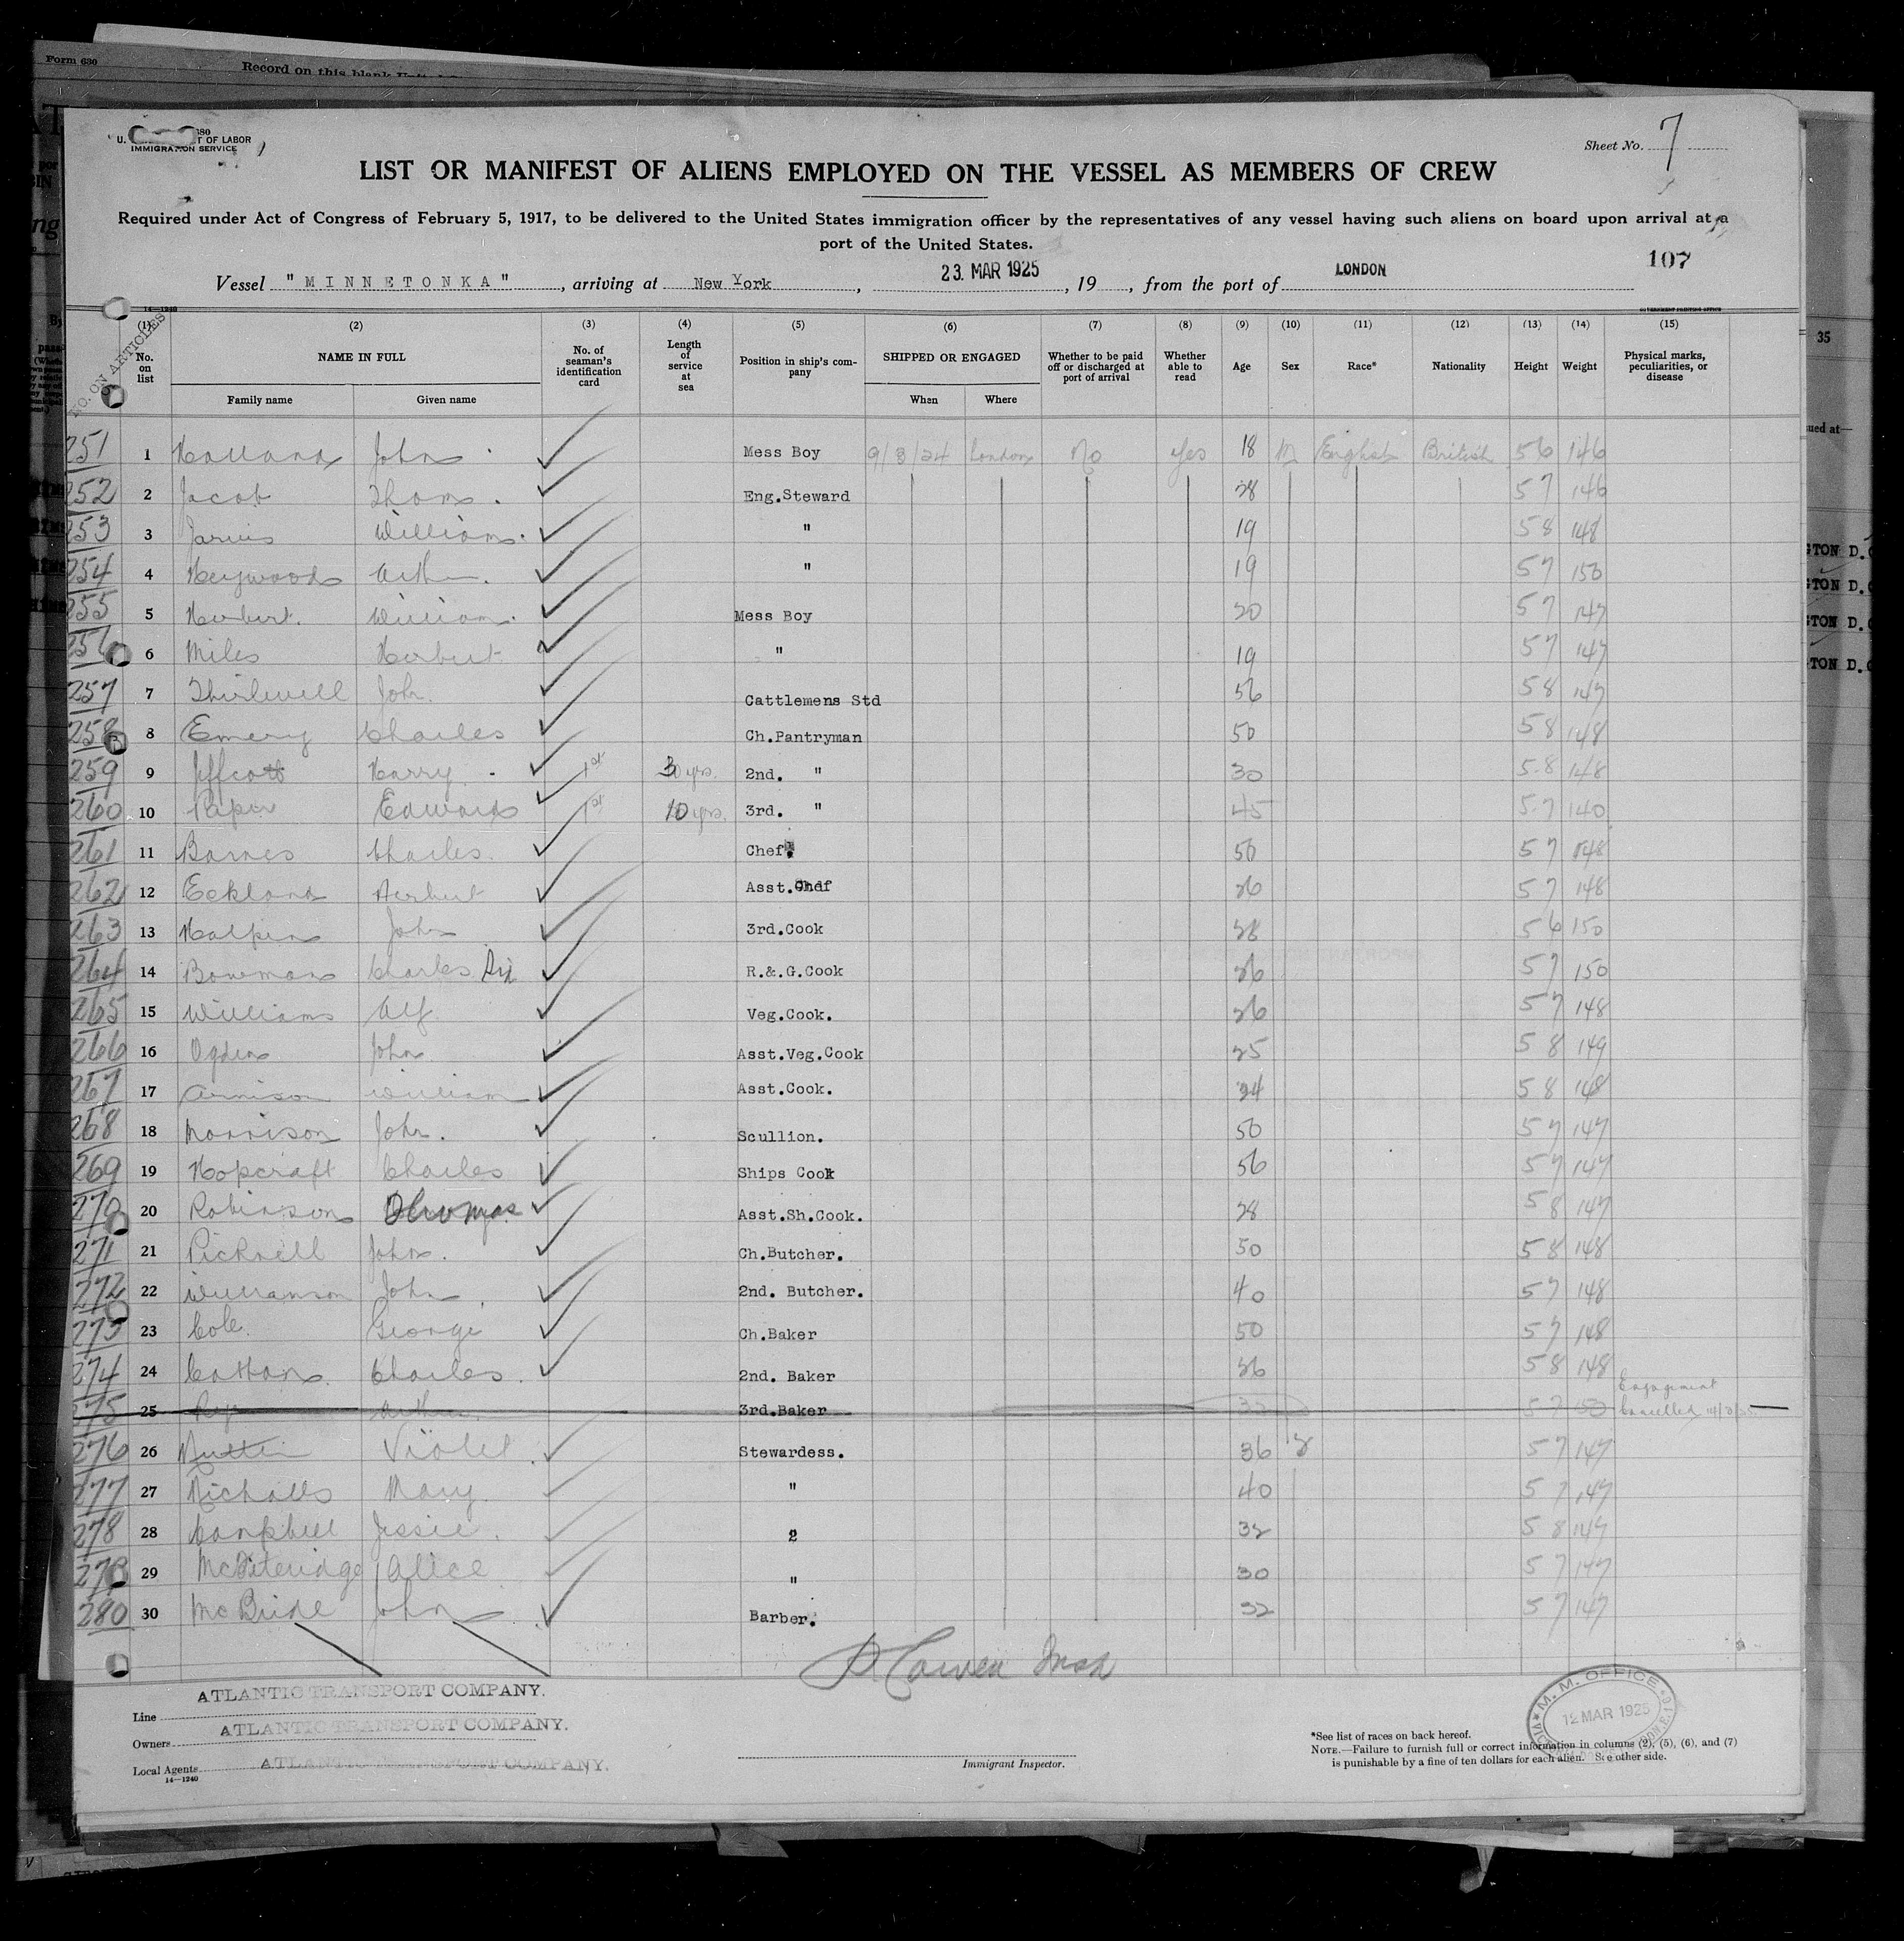 Form 630
Record on this blank
U. T OF LABOR
IMMIGRATION SERVICE
Sheet No. 7
LIST OR MANIFEST OF ALIENS EMPLOYED ON THE VESSEL AS MEMBERS OF CREW
Required under Act of Congress of February 5, 1917, to be delivered to the United States immigration officer by the representatives of any vessel having such aliens on board upon arrival at a
port of the United States.
107
Vessel "MINNETONKA", arriving at New York, 23. MAR 1925, 19, from the port of LONDON
14—1240 GOVERNMENT PRINTING OFFICE
NO. ON ARTICLES
(1) (2) (3) (4) (5) (6) (7) (8) (9) (10) (11) (12) (13) (14) (15)
No. on list NAME IN FULL No. of seaman's identification card Length of service at sea Position in ship's company SHIPPED OR ENGAGED Whether to be paid off or discharged at port of arrival Whether able to read Age Sex Race* Nationality Height Weight Physical marks, peculiarities, or disease
Family name Given name When Where
251 1 Holland John Mess Boy 9/3/24 London No Yes 18 M English British 5 6 146
252 2 Jacob Thom. Eng.Steward 28 5 7 146
253 3 Jarvis William. " 19 5 8 148
254 4 Heywood Arth. " 19 5 7 150
255 5 Herbert. William. Mess Boy 20 5 7 147
256 6 Miles Herbert " 19 5 7 147
257 7 Thirlwell John. Cattlemens Std 56 5 8 147
258 8 Emery Charles Ch.Pantryman 50 5 8 148
259 9 Jeffcott Harry. 1st 30 yrs. 2nd. " 30 5.8 148
260 10 Edward 1st 10 yrs. 3rd. " 45 5.7 140
261 11 Barnes Charles. Chef. 50 5 7 148
262 12 Eckland Herbert Asst.Chef 26 5 7 148
263 13 Halpin John 3rd.Cook 28 5 6 150
264 14 Bowman Charles R.&.G.Cook 26 5 7 150
265 15 Williams Alf. Veg.Cook. 26 5 7 148
266 16 Ogden John. Asst.Veg.Cook 25 5 8 149
267 17 Arnison William Asst.Cook. 24 5 8 148
268 18 Morrison John. Scullion. 50 5 7 147
269 19 Hopcraft Charles Ships Cook 56 5 7 147
270 20 Robinson Thomas Asst.Sh.Cook. 28 5 8 147
271 21 Picknell John. Ch.Butcher. 50 5 8 148
272 22 Williamson John 2nd. Butcher. 40 5 7 148
273 23 Cole. George Ch.Baker 50 5 7 148
274 24 Cottan. Charles. 2nd. Baker 26 5 8 148
275 25 Arthur. 3rd.Baker 32 5 7 150 Engagement Cancelled
276 26 Violet Stewardess. 36 5 7 147
277 27 Nicholls Mary. " 40 5 7 147
278 28 Campbell Jessie. 2 32 5 8 147
279 29 Alice " 30 5 7 147
280 30 McBride John Barber. 32 5 7 147
Line ATLANTIC TRANSPORT COMPANY.
Owners ATLANTIC TRANSPORT COMPANY.
Local Agents ATLANTIC TRANSPORT COMPANY.
14—1240
Immigrant Inspector.
M. M. OFFICE
12 MAR 1925
*See list of races on back hereof.
NOTE.—Failure to furnish full or correct information in columns (2), (5), (6), and (7)
is punishable by a fine of ten dollars for each alien. See other side.
35